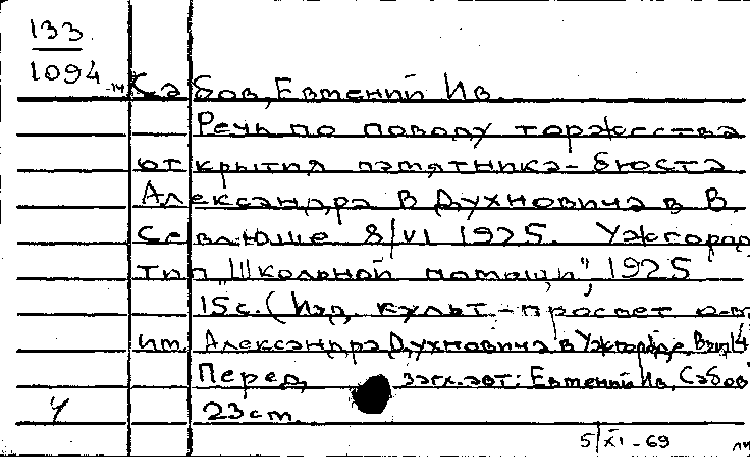 133
1094
Сабов, Евмений Ив.
Речь по поводу торжества
открытия памятника-бюста
Александра В Духновича в В.
Севлюше 8/VI 1925. Ужгород
тип "Школьной помощи", 1925
15с. (Изд. культ.-просвет. о-ва
им. Александра Духновича в Ужгороде. Вып 14
Перед загл. авт: Евмений Ив. Сабов
23 см.
5/XI-69